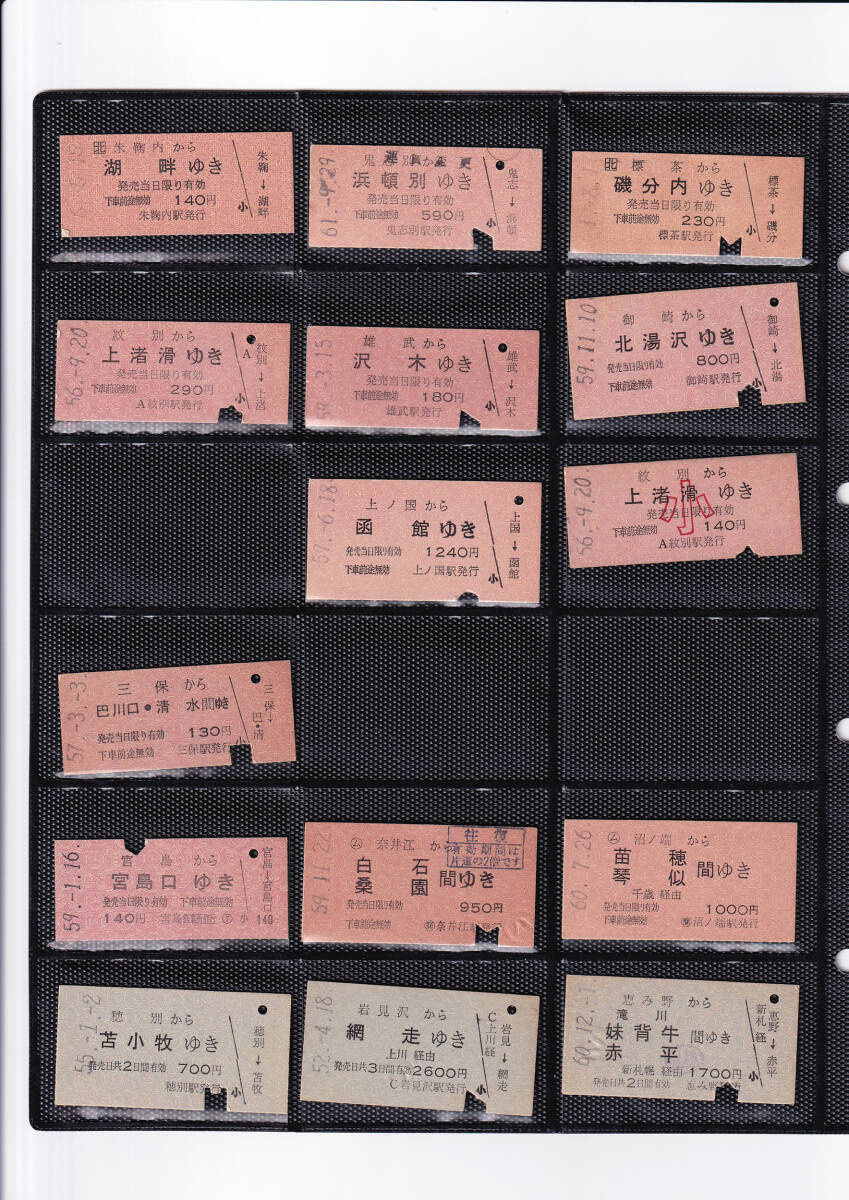 北 朱鞠内から
湖畔ゆき
発売当日限り有効
下車前途無効 140円
朱鞠内駅発行
小
朱鞠→湖畔
61.-9.29
浜頓別ゆき
発売当日限り有効
下車前途無効 590円
鬼志別駅発行
小
鬼志→浜頓
北 標茶から
磯分内ゆき
発売当日限り有効
下車前途無効 230円
標茶駅発行
小
標茶→磯分
56.-9.20
紋別から
上渚滑ゆき
発売当日限り有効
下車前途無効 290円
A紋別駅発行
A
小
紋別→上渚
3.15
雄武から
沢木ゆき
発売当日限り有効
下車前途無効 180円
雄武駅発行
小
雄武→沢木
59.11.10
御崎から
北湯沢ゆき
800円
発売当日限り有効
下車前途無効 御崎駅発行
小
御崎→北湯
57.-6.18
上ノ国から
函館ゆき
発売当日限り有効 1240円
下車前途無効 上ノ国駅発行
小
上国→函館
56.-9.20
紋別から
上渚滑ゆき
発売当日限り有効
下車前途無効 140円
A紋別駅発行
小
57.-3.-3
三保から
巴川口・清水間ゆき
発売当日限り有効 130円
下車前途無効 三保駅発行
小
三保→巴・清
59.-1.16
宮島から
宮島口ゆき
発売当日限り有効 下車前途無効
140円
小 140
宮島→宮島口
59.11.22
ム 奈井江から
白石
桑園 間ゆき
発売当日限り有効 950円
下車前途無効
往復
有効期間は
片道の2倍です
60.7.26
ム 沼ノ端から
苗穂
琴似 間ゆき
千歳 経由
発売当日限り有効
下車前途無効 1000円
沼ノ端駅発行
55.-1.-2
穂別から
苫小牧ゆき
発売日共2日間有効 700円
穂別駅発行
小
穂別→苫牧
52.-4.18
岩見沢から
網走ゆき
上川 経由
発売日共3日間有効 2600円
C岩見沢駅発行
C上川経
岩見→網走
60.12.-1
恵み野から
滝川
妹背牛
赤平 間ゆき
新札幌 経由 1700円
発売日共2日間有効
小
新札経
恵野→赤平